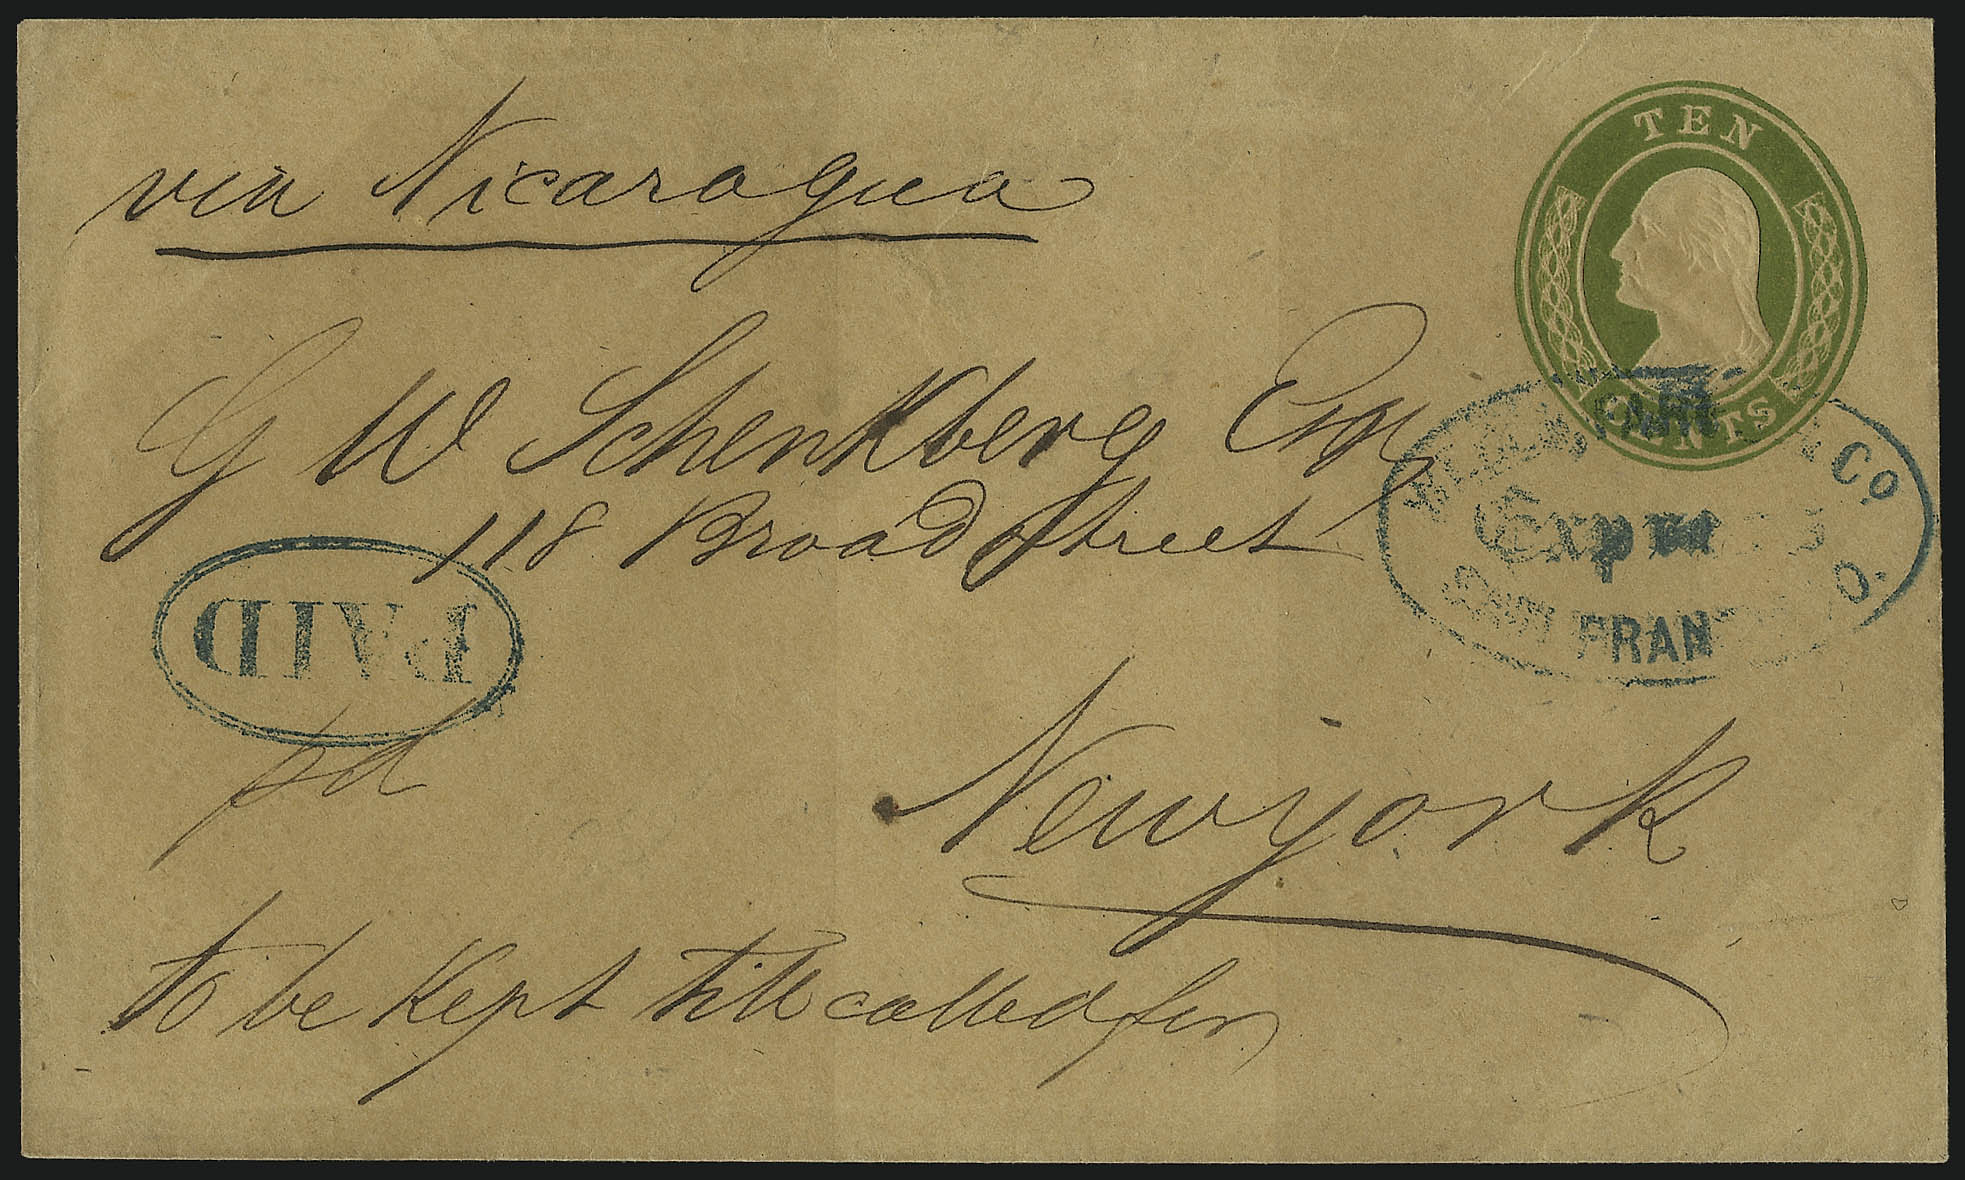 via Nicaragua
TEN
CENTS
G W Schenkberg Esqr
118 Broad Street
WELLS, FARGO & Co
Express
SAN FRANCISCO.
PAID
pd
New york
to be Kept till called for